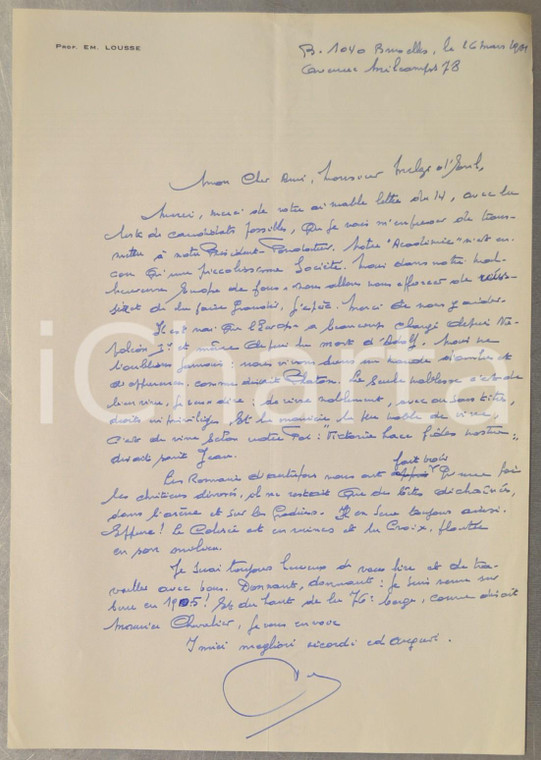 PROF. EM. LOUSSE
B. 1040 Bruxelles, le 26 mars 1981
Avenue Milcamps 78
Mon Cher Ami, Monsieur
Merci, merci de votre aimable lettre du 14, avec la
liste de candidats possibles, que je vais m'empresser de trans-
mettre à notre Président-Fondateur. Notre "Académie" n'est en-
cor qu'une piccolissime Société. Mais dans notre mal-
heureuse Europe de fous, nous allons nous efforcer de réus-
sir et de la faire grandir, j'espère. Merci de nous y aider.
Il est vrai que l'Europe a beaucoup changé depuis Na-
poléon Ier et même depuis la mort d'Adolf. Mais ne
l'oublions jamais: nous vivons dans un monde d'ombres et
d'apparences, comme disait Platon. La seule noblesse, c'est de
bien vivre, je veux dire: de vivre noblement, avec ou sans titres,
droits ni privilèges. Et la manière la plus noble de vivre,
c'est de vivre selon notre Foi: "Victoria haec fides nostra",
disait saint Jean.
Les Romains d'autrefois nous ont fait voir que une fois
les chrétiens dévorés, il ne restait que des bêtes déchaînées,
dans l'arène et sur les gradins. Il en sera toujours ainsi.
Le Colisée est en ruines et la Croix, plantée
en son milieu.
Je serai toujours heureux de vous lire et de tra-
vailler avec vous. Donnant, donnant: je suis venu sur
terre en 1905! Et du haut de la 76e berge, comme disait
Maurice Chevalier, je vous envoie
I miei migliori ricordi ed auguri.
iCharta